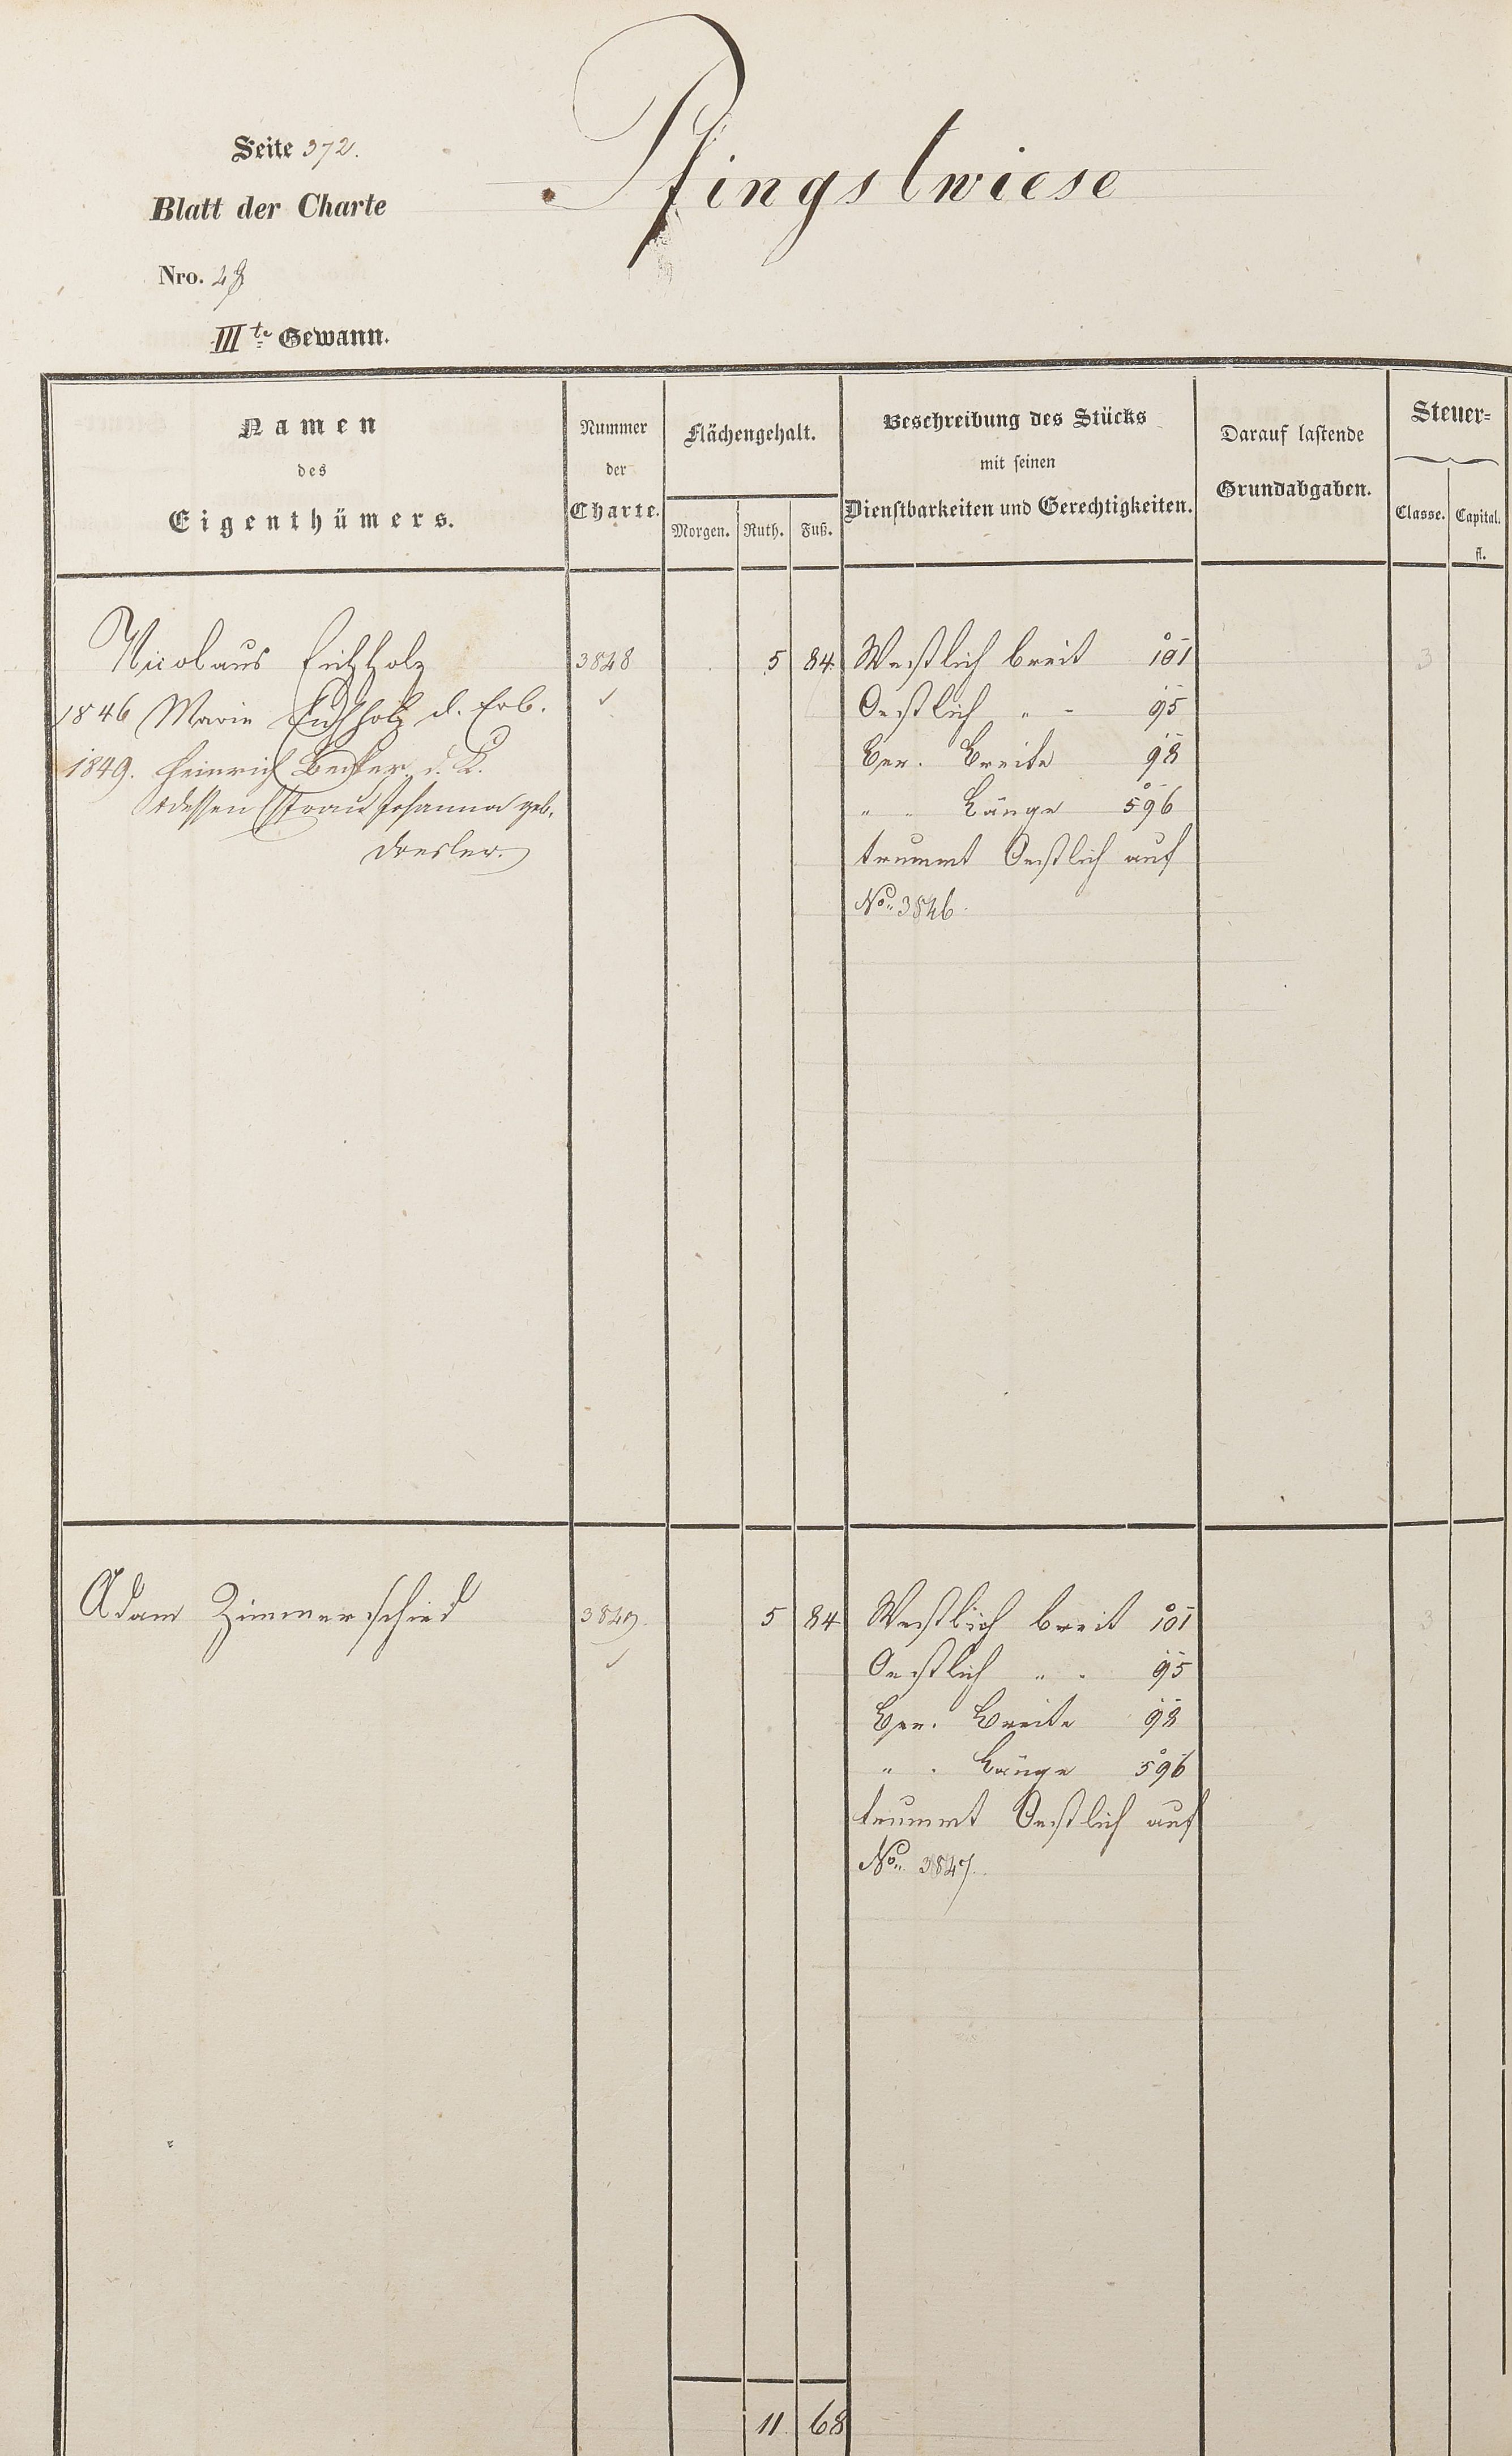 Pfingstwiese
Seite 372.
Blatt der Charte
Nro. 28
IIIte Gewann.
Namen
des
Eigenthümers.
Nummer
der
Charte.
Flächengehalt.
Morgen. Ruth. Fuß.
Beschreibung des Stücks
mit seinen
Dienstbarkeiten und Gerechtigkeiten.
Darauf lastende
Grundabgaben.
Steuer=
Classe. Capital.
fl.
Nicolaus Eichholz 3848 5 84 Westlich breit 101 3
1846 Marie Eichholz d. Erb. ✓ Oestlich " - 95
1849. Heinrich Becker d. K. Ger. Breite 98
&dessen Frau Johanna geb. " " Länge 596
Dresler. trummt Oestlich auf
No. 3846.
Adam Zimmerschied 3849. 5 84 Westlich breit 101 3
✓ Oestlich " - 95
Ger. Breite 98
" " Länge 596
trummt Oestlich auf
No. 3847.
11 68